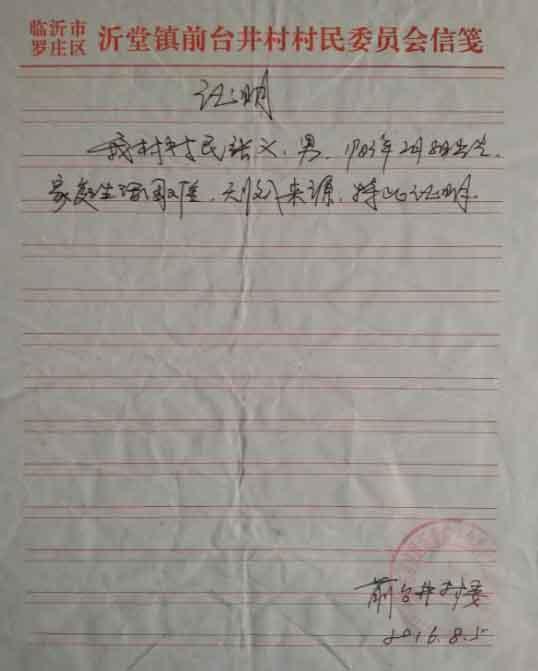 临沂市
罗庄区 沂堂镇前台井村村民委员会信笺
证明
我村村民张义，男，198年2月出生，
家庭生活困难，无收入来源，特此证明。
前台井村委
2016.8.5